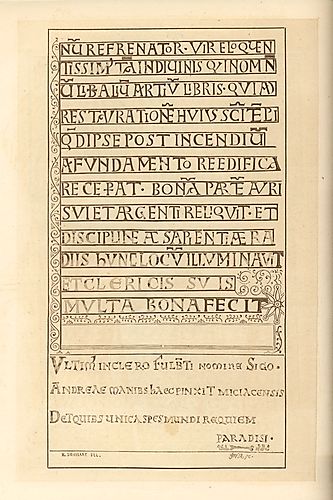 NŪ REFRENATOR · VIR ELOQUEN
TISSIM' TĀ IN DIVINIS QUĀ IN OMNIŪ
LIBALIŪ ARTIŪ LIBRIS · QUI AD
RESTAURATIONĒ HUIUS SCĪ TĒPLI
QD IPSE POST INCENDIŪ
A FUNDAMENTO REEDIFICA
RE CEPAT · BONĀ PARTĒ AURI
SUI ET ARGENTI RELIQUIT · ET
DISCIPLINÆ AC SAPIENTIÆ RA
DIIS HUNC LOCŪ ILLUMINAVIT
ET CLERICIS SUIS
MULTA BONA FECIT
VLTIM' IN CLERO FULBTI NOMINE SIGO ·
ANDREAE MANIBS HAEC PINXIT MICIACENSIS
DET QUIBUS UNICA SPES MUNDI REQUIEM
PARADISI ·